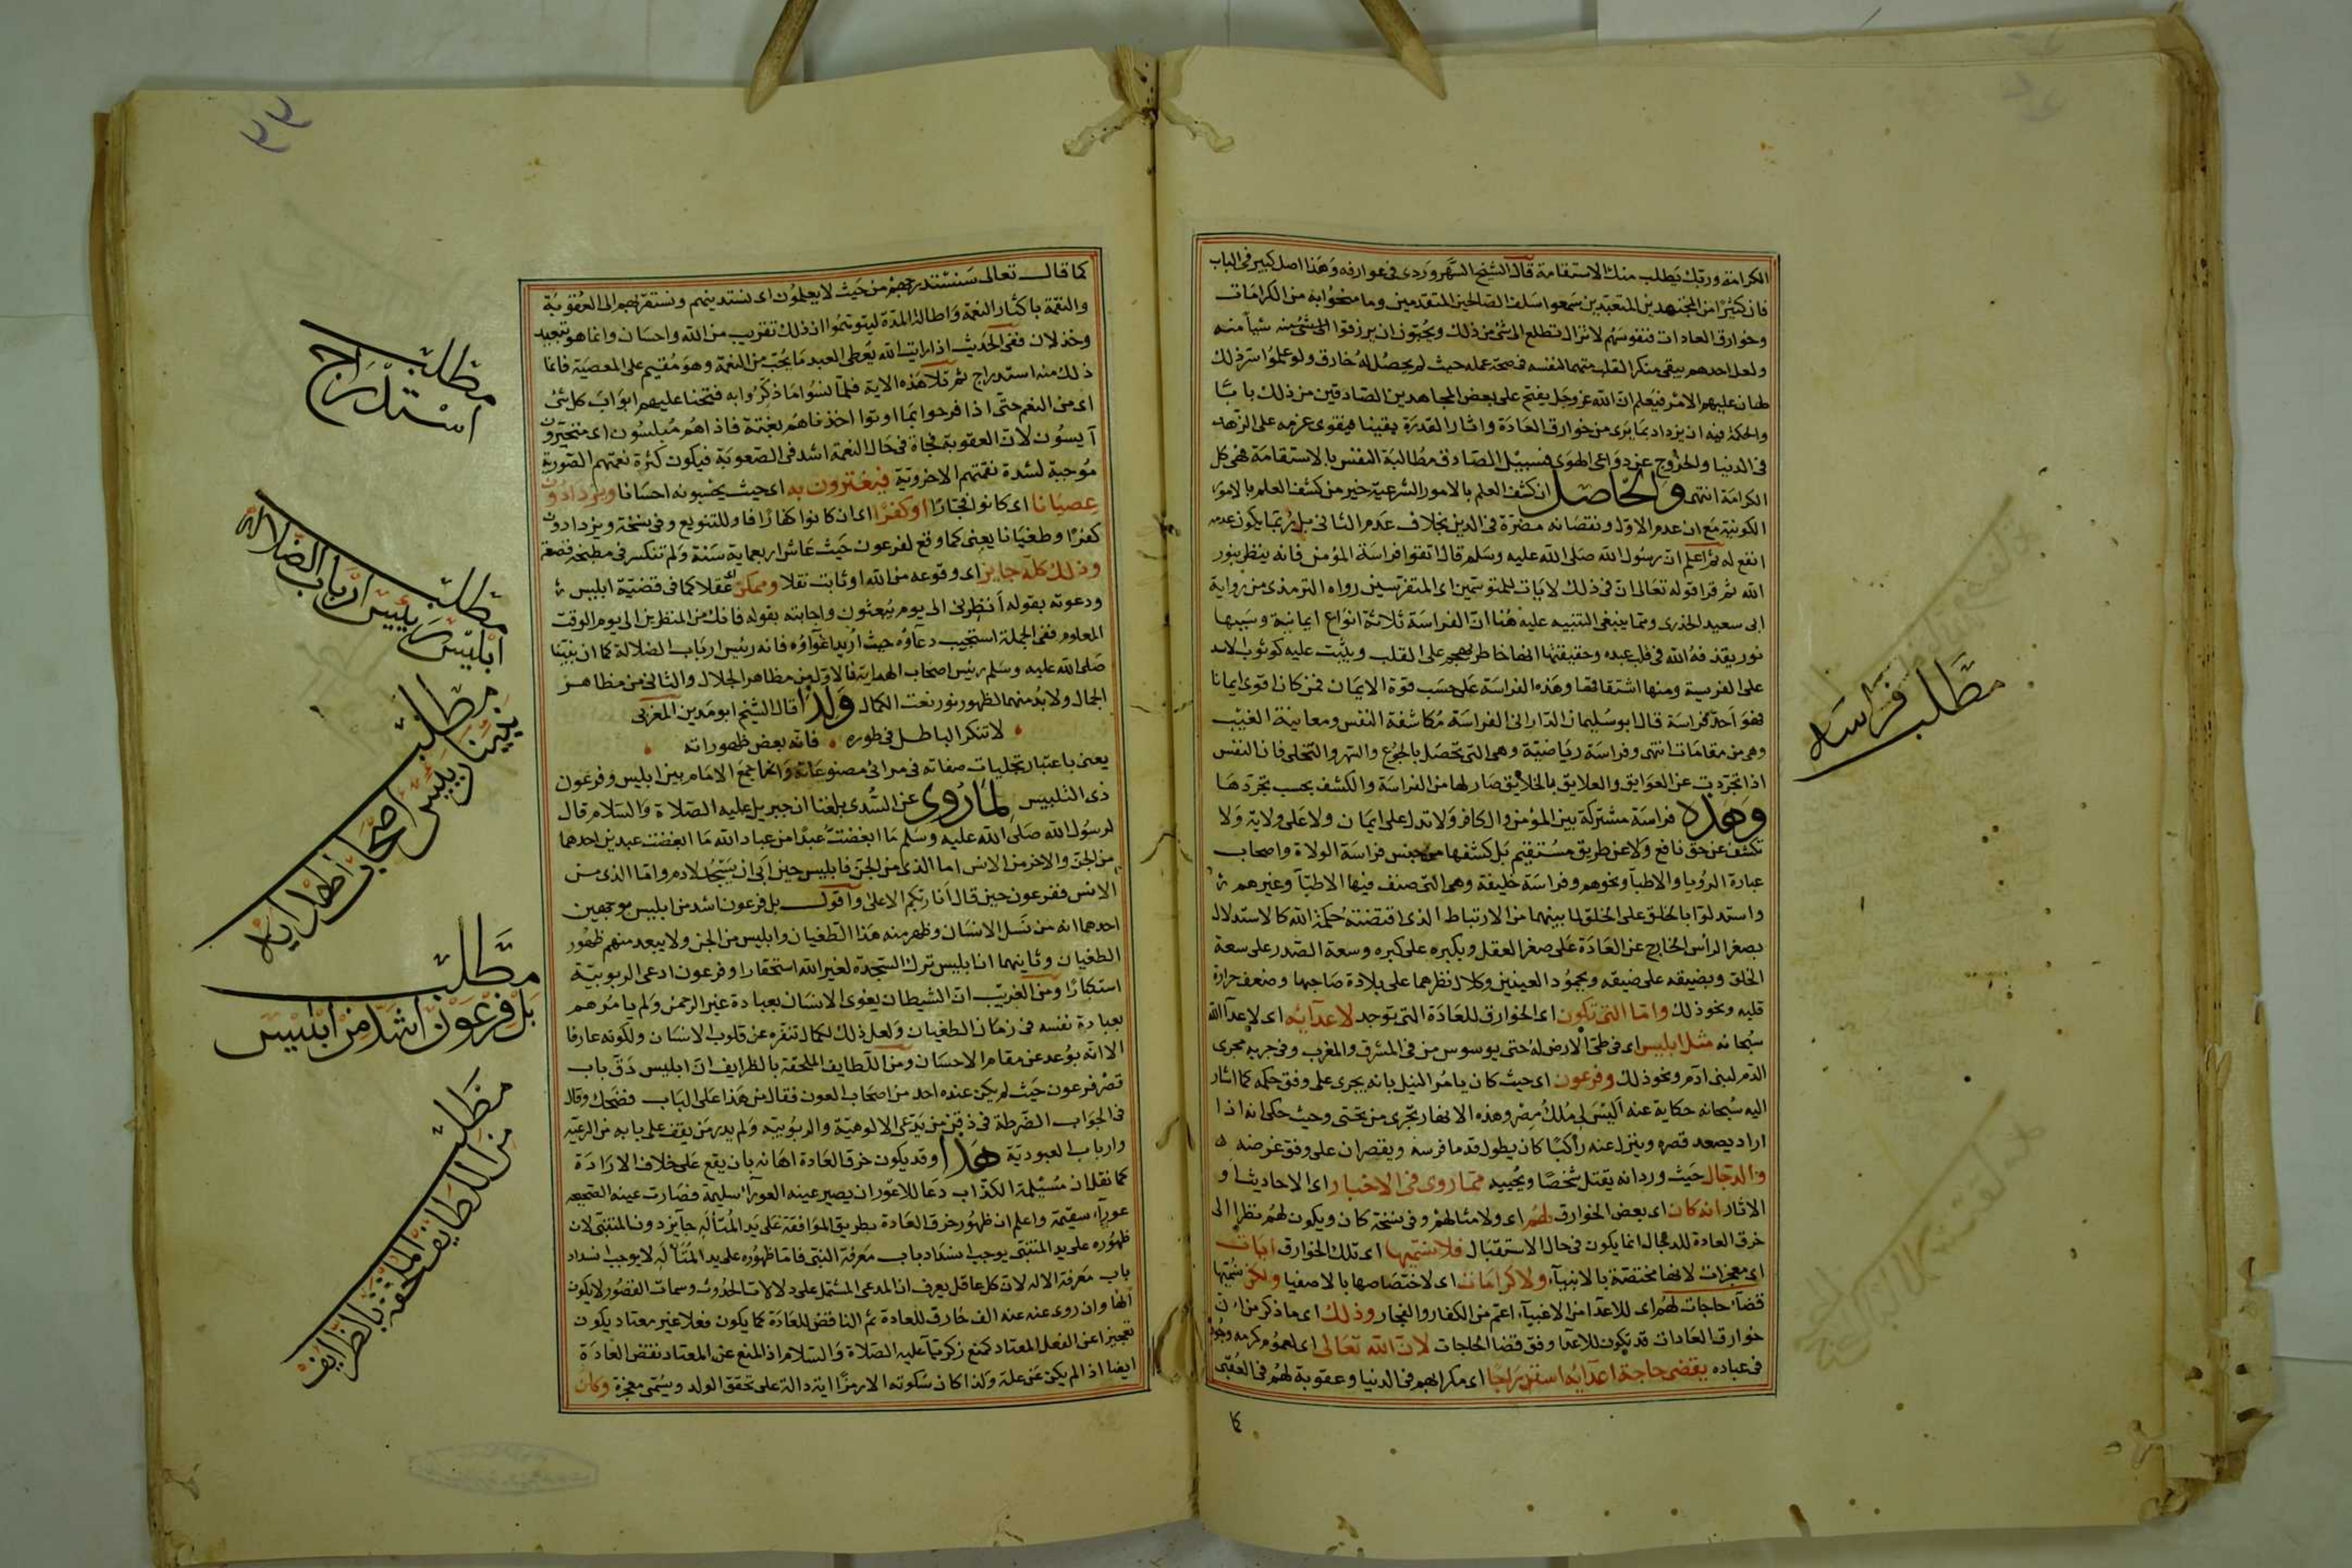 الكرامة وربك يطلب منك الاستقامة قال الشيخ السهروردى فى عوارفه وهذا اصل كبير فى الباب
فان كثيرا من المجتهدين المتعبدين سمعوا سلف الصالحين المتقدمين وما منحوا به من الكرامات
وخوارق العادات فنفوسهم لا تزال تتطلع الى شئ من ذلك ويحبون ان يرزقوا شيأ منه
ولعل احدهم يبقى منكر القلب متهما لنفسه فى صحة عمله حيث لم يحصل له خارق ولو علموا سر ذلك
لهان عليهم الامر فيعلم ان الله عز وجل يفتح على بعض المجاهدين الصادقين من ذلك بابا
والحكمة فيه ان يزداد بما يرى من خوارق العادة واثار القدرة يقينا فيقوى عزمه على الزهد
فى الدنيا والخروج عن دواعى الهوى فسبيل الصادق مطالبة النفس بالاستقامة فهى كل
الكرامة انتهى والحاصل ان كشف العلم بالامور الشرعية خير من كشف العلم بالامور
الكونية مع ان عدم الاول ونقصانه مضرة فى الدين بخلاف عدم الثانى بل ربما يكون عدمه
انفع له ثم اعلم ان رسول الله صلى الله عليه وسلم قال اتقوا فراسة المؤمن فانه ينظر بنور
الله ثم قرا قوله تعالى ان فى ذلك لايات للمتوسمين اى المتفرسين رواه الترمذى من رواية
ابى سعيد الخدرى ومما ينبغى التنبيه عليه هنا ان الفراسة ثلاثة انواع ايمانية وسببها
نور يقذفه الله فى قلب عبده وحقيقتها انها خاطر يهجم على القلب ويثبت عليه كوثوب الاسد
على الفريسة ومنها اشتقاقها وهذه الفراسة على حسب قوة الايمان فمن كان اقوى ايمانا
فهو احد فراسة قال ابو سليمان الدارانى الفراسة مكاشفة النفس ومعاينة الغيب
وهى من مقامات انتهى وفراسة رياضية وهى التى تحصل بالجوع والسهر والتخلى فان النفس
اذا تجردت عن العوايق والعلايق بالخلايق صار لها من الفراسة والكشف بحسب تجردها
وهذه فراسة مشتركة بين المؤمن والكافر ولا تدل على ايمان ولا على ولاية ولا
تكشف عن حق نافع ولا عن طريق مستقيم بل كشفها من جنس فراسة الولاة واصحاب
عبارة الرؤيا والاطبا ونحوهم وفراسة خلقية وهى التى صنف فيها الاطبا وغيرهم
واستدلوا بالخلق على الخلق لما بينهما من الارتباط الذى اقتضته حكمة الله كالاستدلال
بصغر الراس الخارج عن العادة على صغر العقل وبكبره على كبره وسعة الصدر على سعة
الخلق وبضيقه على ضيقه وبجمود العينين وكلال نظرهما على بلادة صاحبها وضعف حرارة
قلبه ونحو ذلك واما التى تكون اى الخوارق للعادة التى توجد لاعدائه اى لاعدآ الله
سبحانه مثل ابليس اى فى طى الارض له حتى يوسوس من فى المشرق والمغرب وفى جريه مجرى
الدم لبنى ادم ونحو ذلك وفرعون اى حيث كان يامر النيل بانه يجرى على وفق حكمه كما اشار
اليه سبحانه حكاية عنه اليس لى ملك مصر وهذه الانهار تجرى من تحتى وحيث حكى انه اذا
اراد يصعد قصره وينزل عنه راكبا كان يطول قدما فرسه ويقصران على وفق غرضه
والدجال حيث ورد انه يقتل شخصا ويحييه مما روى فى الاخبار اى الاحاديث او
الاثار انه كان اى بعض الخوارق لهم اى ولامثالهم وفى نسخة كان ويكون لهم نظرا الى
خرق العادة للدجال انما يكون فى حال الاستقبال فلا نسميها اى تلك الخوارق ايات
اى معجزات لانها مختصة بالانبيآ، ولا كرامات اى لاختصاصها بالاصفيا ولكن نسميها
قضآ حاجات لهم اى للاعدا من الاغبيآء اعم من الكفار والفجار وذلك اى ما ذكر من ان
خوارق العادات قد تكون للاعدا وفق قضا الحاجات لان الله تعالى اى لعموم كرمه وجوده
فى عباده يقضى حاجة اعدائه استدراجا اى مكرا بهم فى الدنيا وعقوبة لهم فى العقبى
كما
مطلب فراسه
كما قال تعالى سنستدرجهم من حيث لا يعلمون اى نستدينهم ونستقر بهم الى العقوبة
والنقمة باكثار النعمة واطالة المدة ليتوهموا ان ذلك تقريب من الله واحسان وانما هو تبعيد
وخذلان ففى الحديث اذا رايت الله يعطى العبد ما يحب من النعمة وهو مقيم على المعصية فانما
ذلك منه استدراج ثم تلا هذه الاية فلما نسوا ما ذكروا به فتحنا عليهم ابواب كل شئ
اى من النعم حتى اذا فرحوا بما اوتوا اخذناهم بغتة فاذا هم مبلسون اى متحيرون
آيسون لان العقوبة فجاة فى حال النعمة اشد فى الصعوبة فيكون كثرة نعمتهم الصورية
موجبة لشدة نقمتهم الاخروية فيغترون به اى حيث يحسبونه احسانا ويزدادون
عصيانا اى كانوا فجارا او كفرا اى ان كانوا كفارا فاو للتنويع وفى نسخة ويزدادون
كفرا وطغيانا يعنى كما وقع لفرعون حيث عاش اربعماية سنة ولم تنكسر فى مطبخه قصعة
وذلك كله جايز اى وقوعه من الله او ثابت نقلا وممكن اى عقلا كما فى قضية ابليس
ودعوته بقوله أنظرنى الى يوم يبعثون واجابته بقوله فانك من المنظرين الى يوم الوقت
المعلوم ففى الجملة استجيب دعآؤه حيث اريد اغوآؤه فانه رئيس ارباب الضلالة كما ان نبينا
صلى الله عليه وسلم رئيس اصحاب الهداية فالاول من مظاهر الجلال والثانى من مظاهر
الجمال ولا بد منهما لظهور نور نعت الكمال ولذا قال الشيخ ابو مدين المغربى
لا تنكر الباطل فى طوره فانه بعض ظهوراته
يعنى باعتبار تجليات صفاته فى مرائى مصنوعاته وانما جمع الامام بين ابليس وفرعون
ذى التلبيس لما روى عن السدى بلغنا ان جبريل عليه الصلاة والسلام قال
لرسول الله صلى الله عليه وسلم ما ابغضت عبدا من عباد الله ما ابغضت عبدين احدهما
من الجن والاخر من الانس اما الذى من الجن فابليس حين ابى ان يسجد لادم واما الذى من
الانس ففرعون حين قال أنا ربكم الاعلى واقول بل فرعون اشد من ابليس بوجهين
احدهما انه من نسل الانسان وظهر منه هذا الطغيان وابليس من الجن ولا يبعد منهم ظهور
الطغيان وثانيهما ان ابليس ترك السجدة لغير الله استحقارا وفرعون ادعى الربوبية
استكبارا ومن الغريب ان الشيطان يغوى الانسان بعبادة غير الرحمن ولم يامرهم
بعبادة نفسه فى زمان الطغيان ولعل ذلك لكمال تنفره عن قلوب الانسان ولكونه عارفا
الا انه بوعد عن مقام الاحسان ومن اللطايف الملحقة بالظرايف ان ابليس دق باب
قصر فرعون حيث لم يكن عنده احد من اصحاب العون فقال من هذا على الباب فضحك وقال
فى الجواب الضرطة فى ذقن من يدعى الالوهية والربوبية ولم يدر من يقف على بابه من الرعية
وارباب العبودية هذا وقد يكون خرق العادة اهانة بان يقع على خلاف الارادة
كما نقل ان مسيلمة الكذاب دعا للاعور ان يصير عينه العورآ سليمة فصارت عينه الصحيحة
عورآء سقيمة واعلم ان ظهور خرق العادة بطريق الموافقة على يد المتأله جايز دون المتنبى لان
ظهوره على يد المتنبى يوجب انسداد باب معرفة النبى فاما ظهوره على يد المتأله لا يوجب انسداد
باب معرفة الاله لان كل عاقل يعرف ان المدعى المشتمل على دلالات الحدوث وسمات القصور لا يكون
الها وان روى عنه الف خارق للعادة ثم الناقض للعادة كما يكون فعلا غير معتاد يكون
تعجيزا عن الفعل المعتاد كمنع زكريا عليه الصلاة والسلام اذ المنع عن المعتاد نقض العادة
ايضا اذا لم يكن عن علة ولذا كان سكوته الا رمزا اية دالة على تحقق الولد ويسمى معجزة وكان
مطلب
استدراج
مطلب
ابليس رئيس ارباب الضلاله
مطلب
نبينا رئيس اصحاب الهدايه
مطلب
بل فرعون اشد من ابليس
مطلب
من اللطايف الملحقة بالظرايف